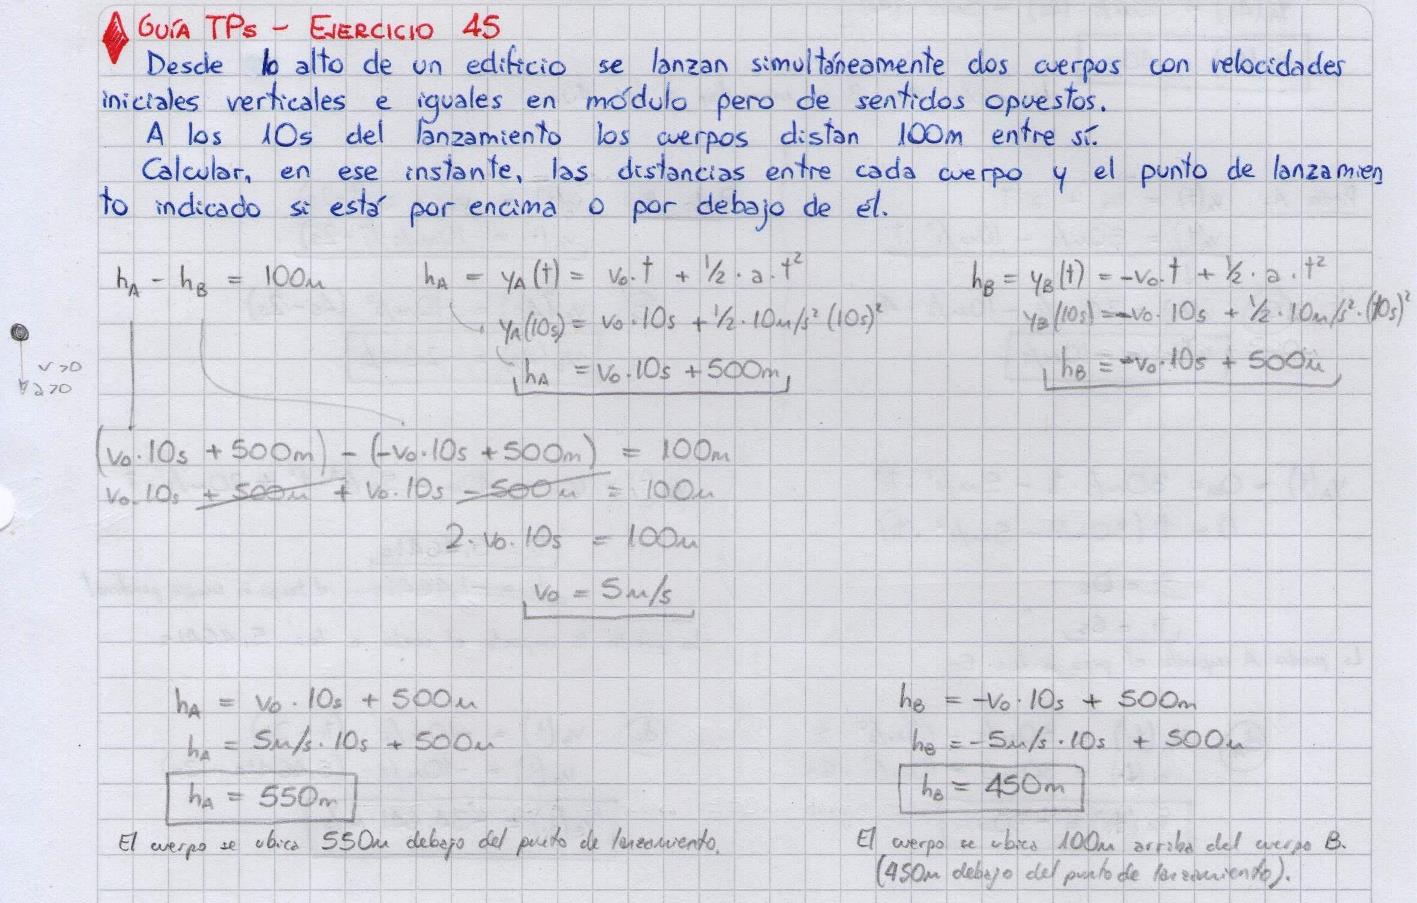 GUÍA TPs - EJERCICIO 45
Desde lo alto de un edificio se lanzan simultáneamente dos cuerpos con velocidades
iniciales verticales e iguales en módulo pero de sentidos opuestos.
A los 10s del lanzamiento los cuerpos distan 100m entre sí.
Calcular, en ese instante, las distancias entre cada cuerpo y el punto de lanzamien
to indicado si está por encima o por debajo de él.
hA - hB = 100m
hA = yA(t) = v₀.t + ½.a.t²
hB = yB(t) = -v₀.t + ½.a.t²
yA(10s) = v₀.10s + ½.10m/s²(10s)²
yB(10s) = -v₀.10s + ½.10m/s².(10s)²
v>0
a>0
hA = v₀.10s + 500m
hB = -v₀.10s + 500m
(v₀.10s + 500m) - (-v₀.10s + 500m) = 100m
v₀.10s + 500m + v₀.10s - 500m = 100m
2.v₀.10s = 100m
v₀ = 5m/s
hA = v₀.10s + 500m
hB = -v₀.10s + 500m
hA = 5m/s.10s + 500m
hB = -5m/s.10s + 500m
hA = 550m
hB = 450m
El cuerpo se ubica 550m debajo del punto de lanzamiento.
El cuerpo se ubica 100m arriba del cuerpo B.
(450m debajo del punto de lanzamiento).